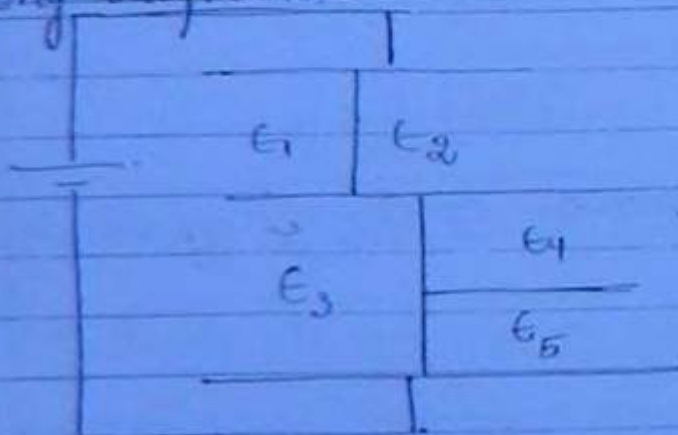 ϵ1 ϵ2
ϵ4
ϵ3
ϵ5